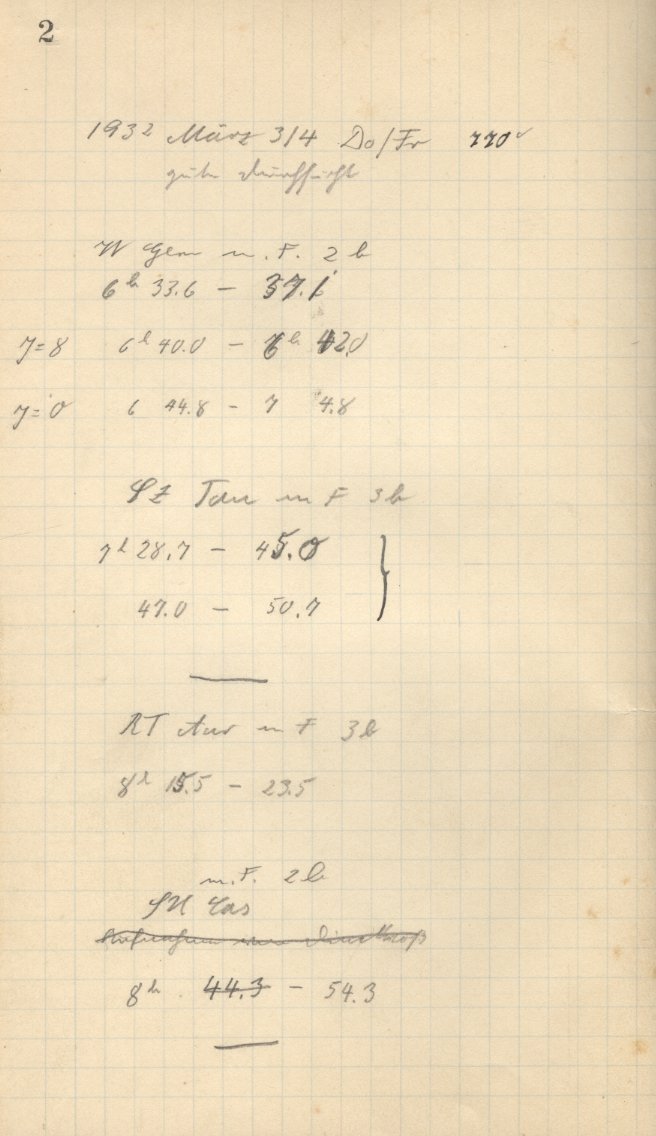 2
1932 März 3/4 Do/Fr 770
gute Durchsicht
W Gem m. F. 2 b
6h 33.6 – 37.1
7=8 6h 40.0 – 6h 42.0
7=0 6 44.8 – 7 4.8
SZ Tau m F 3b
7h 28.7 – 45.0
47.0 – 50.7
RT Aur m F 3b
8h 15.5 – 23.5
m. F. 2b
SU Cas
8h 44.3 – 54.3